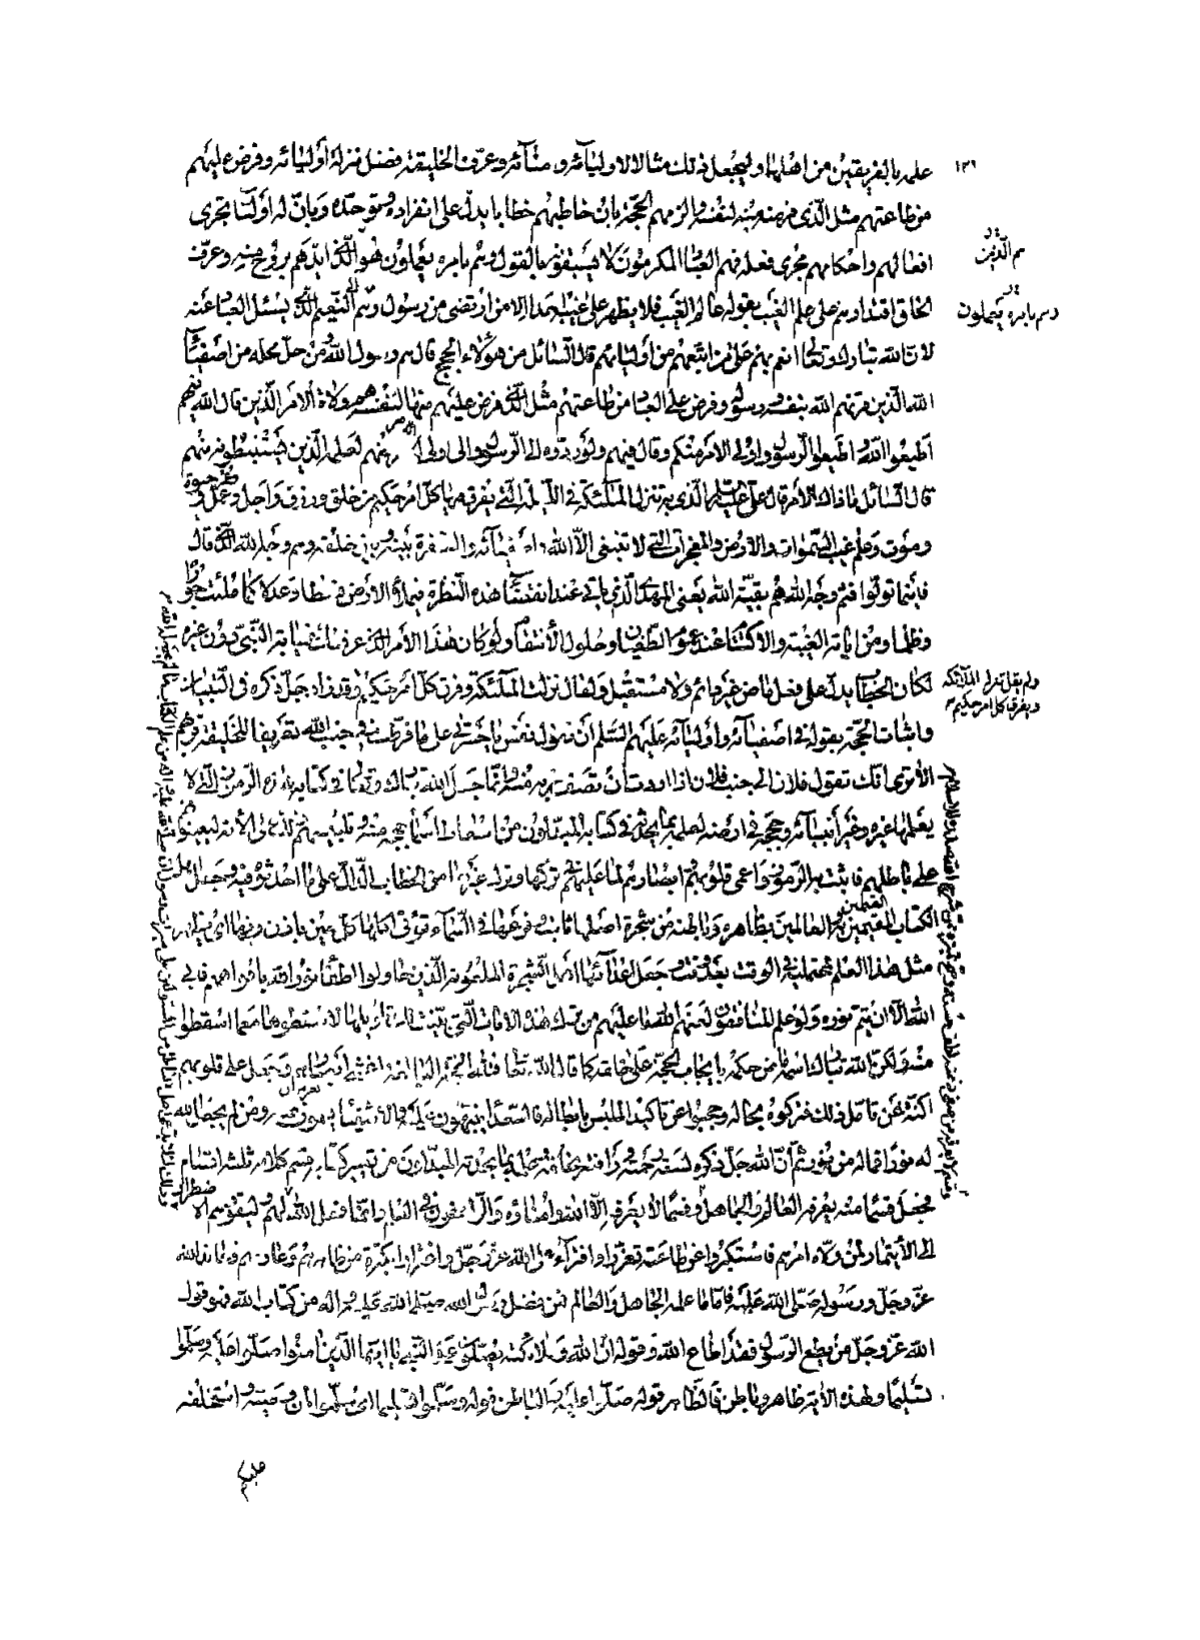 ١٢٦
علمه بالفريقين من اهلها وليجعل ذلك مثالا لاوليآئه و منآئه وعرّف الخليقة فضل منزلة أوليائه وفرض عليهم
من طاعتهم مثل الّذى فرضه منه لنفسه والزمهم الحجّة بان خاطبهم خطابا يدلّ على انفراده وتوحّده وبانّ له أوليآء تجرى
افعالهم واحكامهم مجرى فعله فهم العباد المكرمون لا يسبقونه بالقول وهم بامره يعملون هو الّذى ايّدهم بروح منه وعرّف
الخلق اقتدارهم على علم الغيب بقوله عالم الغيب فلا يظهر على غيبه احدا الا من ارتضى من رسول وهم النّعيم الذى يسئل العباد عنه
لانّ الله تبارك وتعالى انعم بهم على من اتبعهم من أوليائهم قال السّائل من هؤلاء الحجج قال هم رسول الله ومن حلّ محله من اصفياء
الله الّذين قرنهم الله بنفسه ورسوله وفرض على العباد من طاعتهم مثل الّذى فرض عليهم منها لنفسه وهم ولاة الامر الّذين قال الله فيهم
اطيعوا الله واطيعوا الرّسول وأولى الامر منكم وقال فيهم ولو ردّوه الى الرّسول والى اولى الامر منهم لعلمه الّذين يستنبطونه منهم
قال السّائل ما ذاك الأمر قال علىّ عليه السلم الّذى به تنزل الملٓئكة فى الليلة التى يفرق فيها كلّ امر حكيم من خلق ورزق واجل وعمل وعمر وحيوة
وموت وعلم غيب السّموات والارض والمعجزات التى لا تنبغى الّا الله واصفيآئه والسفرة بينه وبين خلقه وهم وجه الله الّذى قال
فأينما تولّوا فثم وجه الله هم بقيّة الله يعنى المهدى الّذى ياتى عند انقضاء هذه النّظرة فيملأ الارض قسطا وعدلا كما ملئت جورا
وظلما ومن اياته الغيبة والاكتتام عند عموم الطّغيان وحلول الأنتقام ولو كان هذا الأمر الذى عرفتك نباه للنّبىّ دون غيره
لكان الخطاب يدلّ على فعل ماض غير دائم ولا مستقبل ولقال نزلت الملٓئكة وفرق كلّ امر حكيم وقد زاد جلّ ذكره فى التّبيان
واثبات الحجّة بقوله فى اصفيآئه وأوليآئه عليهم السّلم ان تقول نفس يا حسرتى على ما فرطت فى جنب الله تعريفا للخليقة قربهم
الأ ترى انّك تقول فلان الى جنب فلان اذا اردت ان تصف قربه منه انّما جعل الله تبارك وتعالى فى كتابه هذه الرّموز الّتى لا
يعلمها غيره وغير أنبيآئه وحججه فى ارضه لعلمه بما يحدثه فى كتابه المبدّلون من اسقاط اسماء حججه منه وتلبيسهم ذلك على الأمّة ليعينوهم
على باطلهم فاثبت فيه الرّموز واعمى قلوبهم وابصارهم لما عليهم فى تركها وترك غيرها من الخطاب الدّال على ما احدثوه فيه وجعل اهل
الكتاب المقيمين به العالمين بظاهره وباطنه من شجرة اصلها ثابت وفرعها فى السّماء تؤتى اكلها كلّ حين باذن ربها اى يظهر
مثل هذا العلم لمحتمليه فى الوقت بعد الوقت وجعل اعدآئها اهل الشّجرة الملعونة الّذين حاولوا اطفاء نور الله بافواههم فابى
الله الّا ان يتم نوره ولو علم المنافقون لعنهم الله ما عليهم من ترك هذه الايات الّتى بيّنت لك تأويلها لاسقطوها مع ما اسقطوا
منه ولكنّ الله تبارك اسمه ماض حكمه بايجاب الحجّة على خلقه كما قال الله تعالى فللّه الحجّة البالغة اغشى أبصارهم وجعل على قلوبهم
اكنّة عن تأمّل ذلك فتركوه بحاله وحجبوا عن تأكيد الملبس بابطاله فالسعداء ينتبهون عليه والاشقياء يعمون عنه ومن لم يجعل الله
له نورا فما له من نور ثمّ انّ الله جلّ ذكره لسعة رحمته ورأفته بخلقه وعلمه بما يحدثه المبدّلون من تغيير كتابه قسم كلامه ثلثة اقسام
فجعل قسما منه يعرفه العالم والجاهل وقسما لا يعرفه الّا الله وامناؤه والرّاسخون فى العلم وانّما فعل الله ذلك ليقودهم الاضطرار
الى الأيتمار لمن ولّاه امرهم فاستكبروا عن طاعته تعزّزا وافترآء على الله عزّ وجلّ واغترارا بكثرة من ظاهرهم وعاونهم وعاند الله
عزّ وجلّ ورسوله صلّى الله عليه فامّا ما علمه الجاهل والعالم من فضل رسول الله صلّى الله عليه وآله من كتاب الله فهو قول
الله عزّ وجلّ من يطع الرّسول فقد اطاع الله وقوله انّ الله وملائكته يصلّون على النّبى يا ايّها الّذين امنوا صلّوا عليه وسلّموا
تسليما ولهذه الاية ظاهر وباطن فالظّاهر قوله صلّوا عليه والباطن قوله وسلّموا تسليما اى سلّموا لمن وصيّه واستخلفه
هم الّذين
وهم بامره يعملون
ولم يقل تنزل الملآئكة
ويفرق كل امر حكيم
عليكم